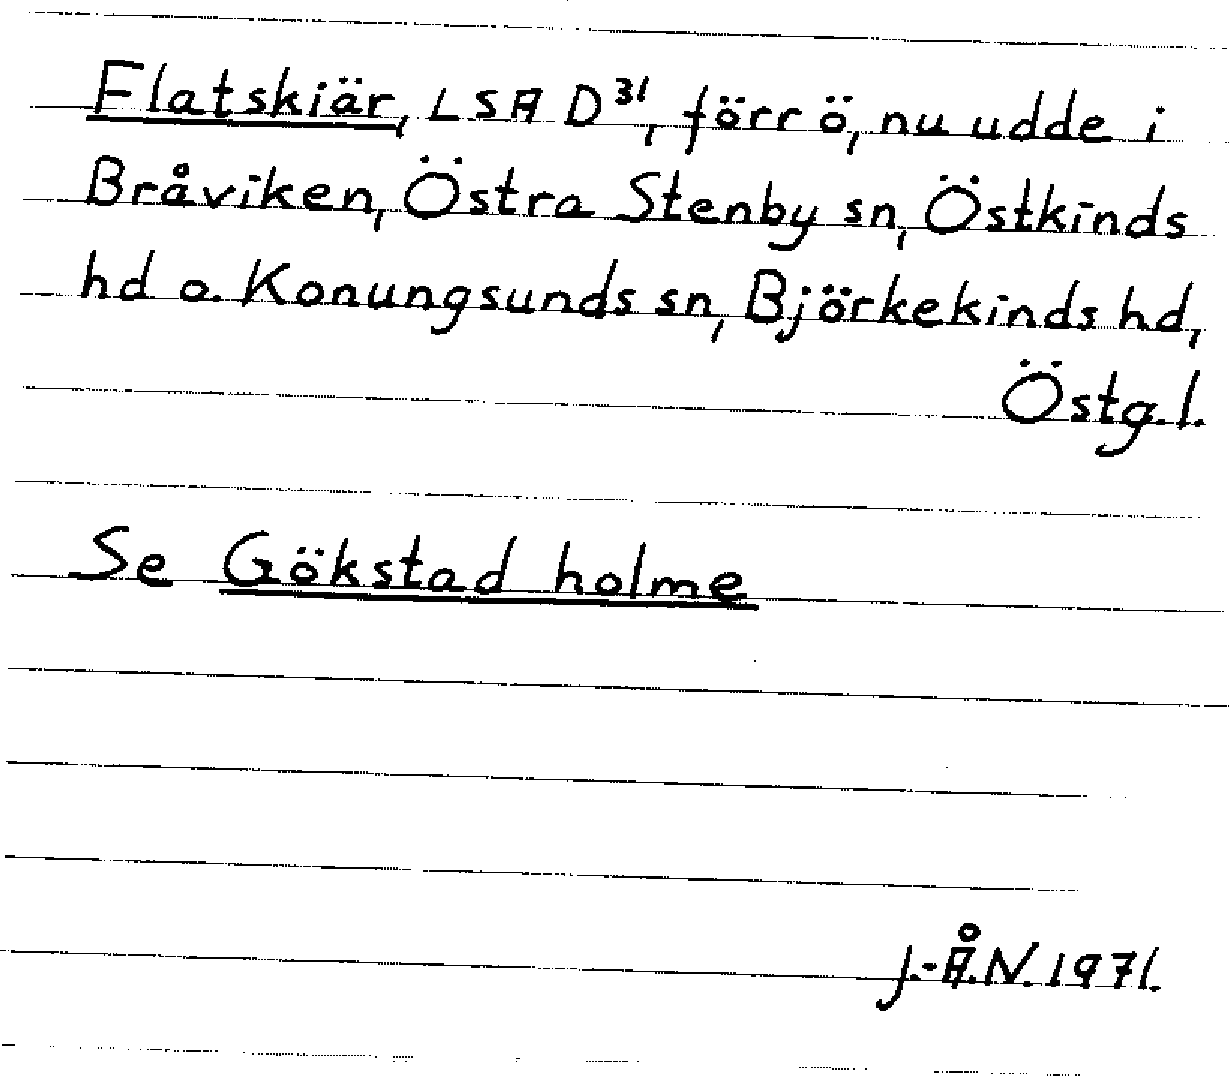 Flatskiär, LSA D³¹, förr ö, nu udde i
Bråviken, Östra Stenby sn, Östkinds
hd o. Konungsunds sn, Björkekinds hd,
Östg.l.
Se Gökstad holme
J.-Å.N. 1971.